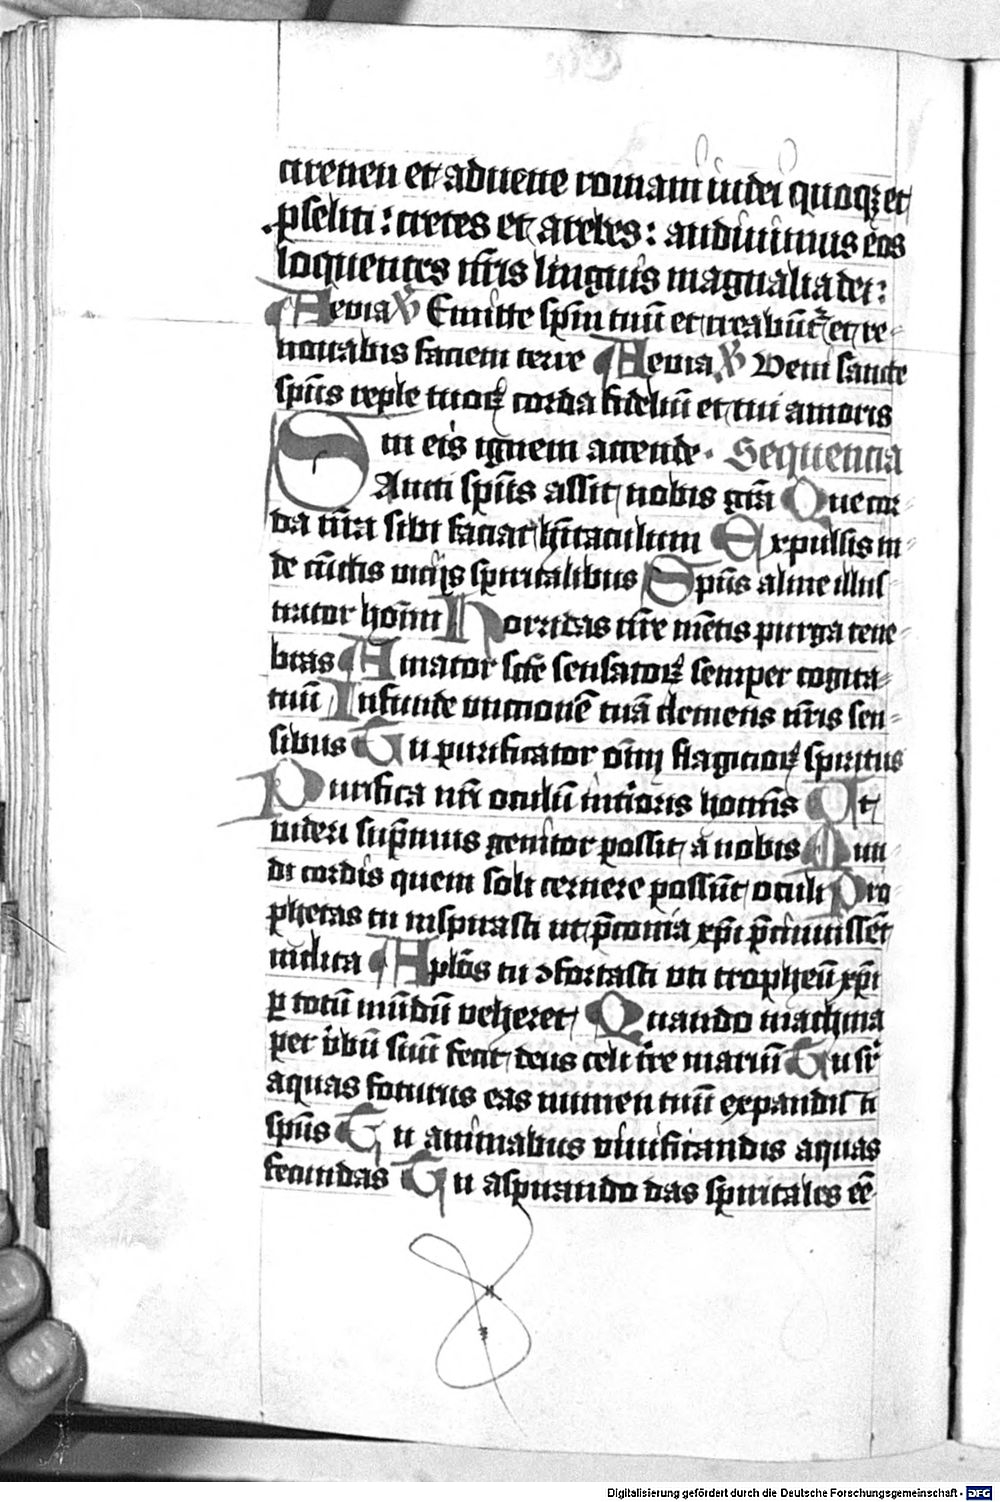 cirenen et aduene romani iudei quoqꝫ et
pseliti : cretes et arebes : audiuimus eos
loquentes nr̄is linguis magnalia dei :
Aeuia ℣ Emitte spm̄ tuū et creabūt᷑ et re-
nouabis faciem terre Aeuia ℣ Veni sancte
spūs reple tuoꝝ corda fideliū et tui amoris
in eis ignem accende . Sequencia
SAncti spūs assit nobis grā Que cor-
da nr̄a sibi faciat hītaculum Expulsis in-
de cūctis vicijs spiritalibus Spūs alme illus-
trator hoīm Horridas nr̄e mētis purga tene-
bras Amator scē sensatoꝝ semper cogita-
tuū Infunde vnctionē tuā clemens nr̄is sen-
sibus Tu purificator oīm flagicioꝝ spiritus
Purifica nr̄i oculū int̄ioris homīs Ut
videri sup̄mus genitor possit a nobis Mun-
di cordis quem soli cernere possūt oculi Pro-
phetas tu inspirasti ut p̄conia xp̄i p̄cinuissēt
inclita Aplōs tu ꝯfortasti vti tropheū xp̄i
ꝑ totū mūdū veheret Quando machina
per v̄bū suū fecit deus celi t̄re mariū Tu sr̄
aquas foturus eas numen tuū expandisti
spūs Tu animabus viuificandis aquas
fecundas Tu aspirando das spiritales eē
Digitalisierung gefördert durch die Deutsche Forschungsgemeinschaft - DFG